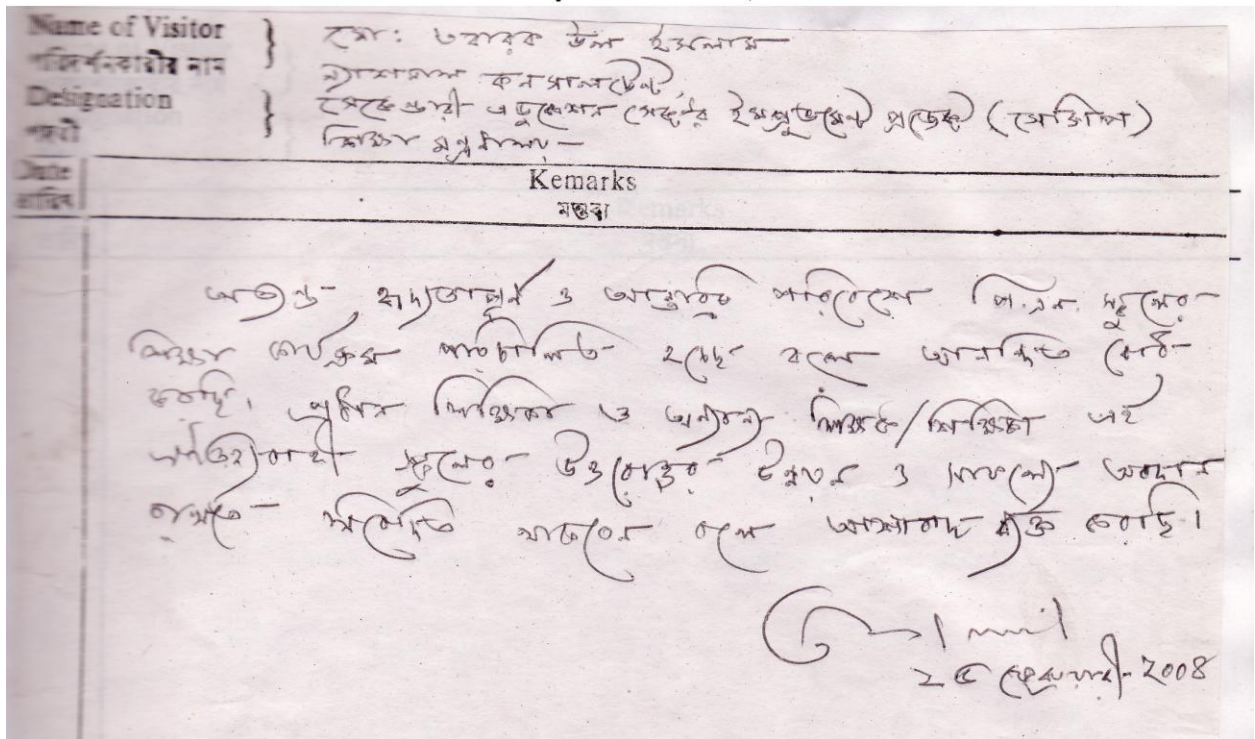 Name of Visitor
পরিদর্শনকারীর নাম
মো: তবারক উল ইসলাম
ন্যাশনাল কনসালটেন্ট,
Designation
পদবী
সেকেন্ডারী এডুকেশন সেক্টর ইমপ্রুভমেন্ট প্রজেক্ট (সেসিপ)
শিক্ষা মন্ত্রণালয়-
Date
তারিখ
Remarks
মন্তব্য
অত্যন্ত হৃদ্যতাপূর্ণ ও আন্তরিক পরিবেশে পি.এন. স্কুলের
শিক্ষা কার্যক্রম পরিচালিত হচ্ছে বলে আনন্দিত বোধ
করছি। প্রধান শিক্ষিকা ও অন্যান্য শিক্ষক/শিক্ষিকা এই
ঐতিহ্যবাহী স্কুলের উত্তরোত্তর উন্নয়ন ও সাফল্যে অবদান
রাখতে থাকবেন বলে আশাবাদ ব্যক্ত করছি।
২৫ ফেব্রুয়ারী-২০০৪